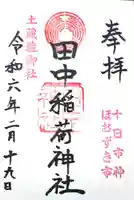 奉拝
十日市神
ほおずき市
田中稲荷神社
令和六年二月十九日